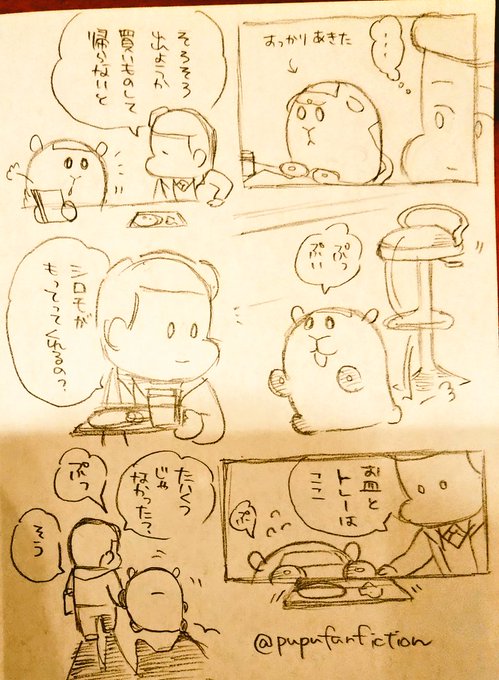 ・・・
おっかりあきた
そろそろ
出ようか
買いものして
帰らないと
ぷっ
ぷい
シロモが
もってってくれるの？
お皿と
トレーは
ここ
ぷ
たいくつ
じゃ
なかった？
ぷっ
そう
@pupufanfiction